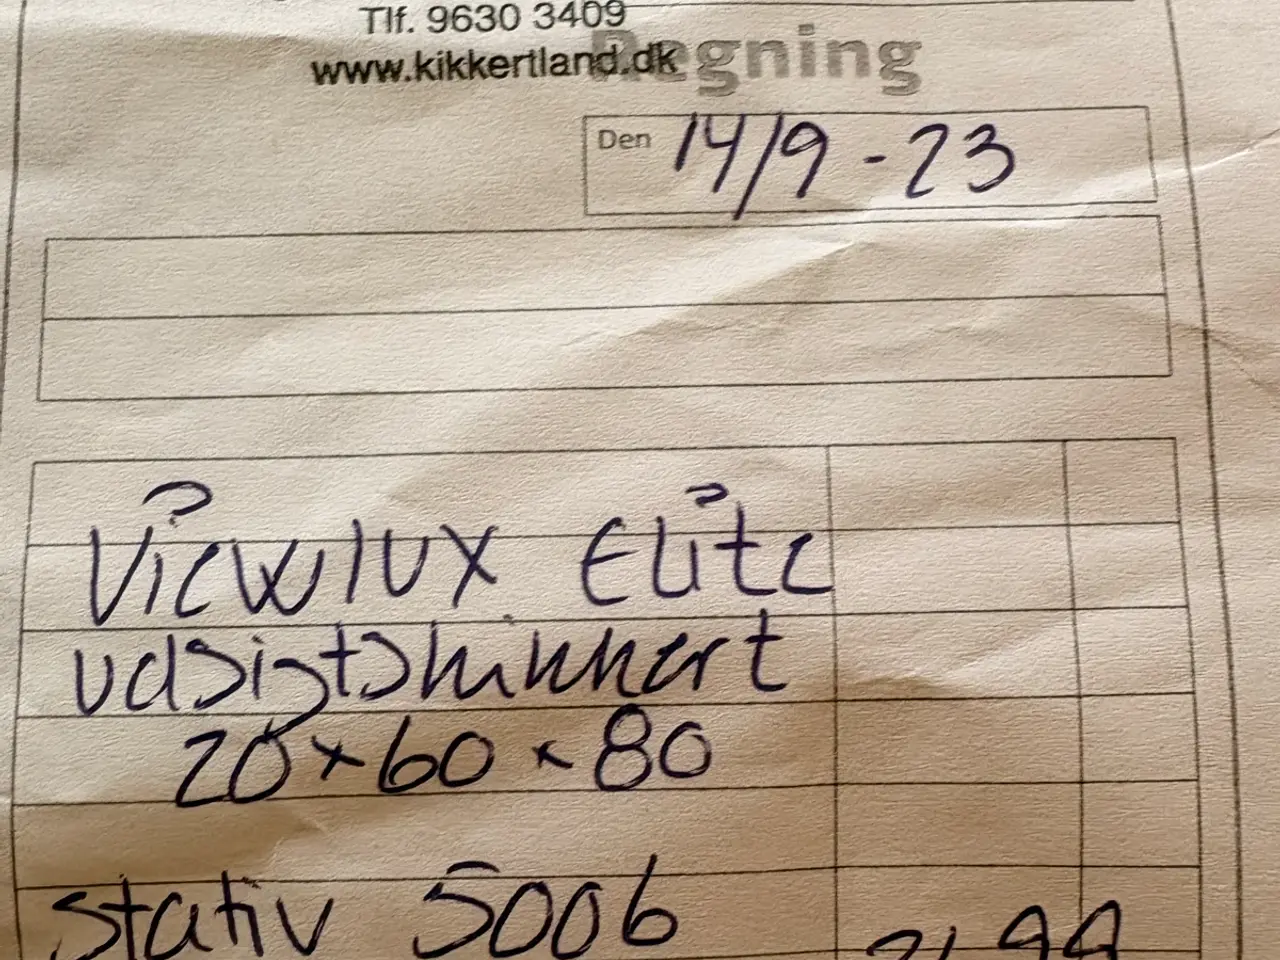 Tlf. 9630 3409
www.kikkertland.dk
Regning
Den 14/9-23
Viewlux Elite
udsigtskikkert
20x60x80
stativ 5006